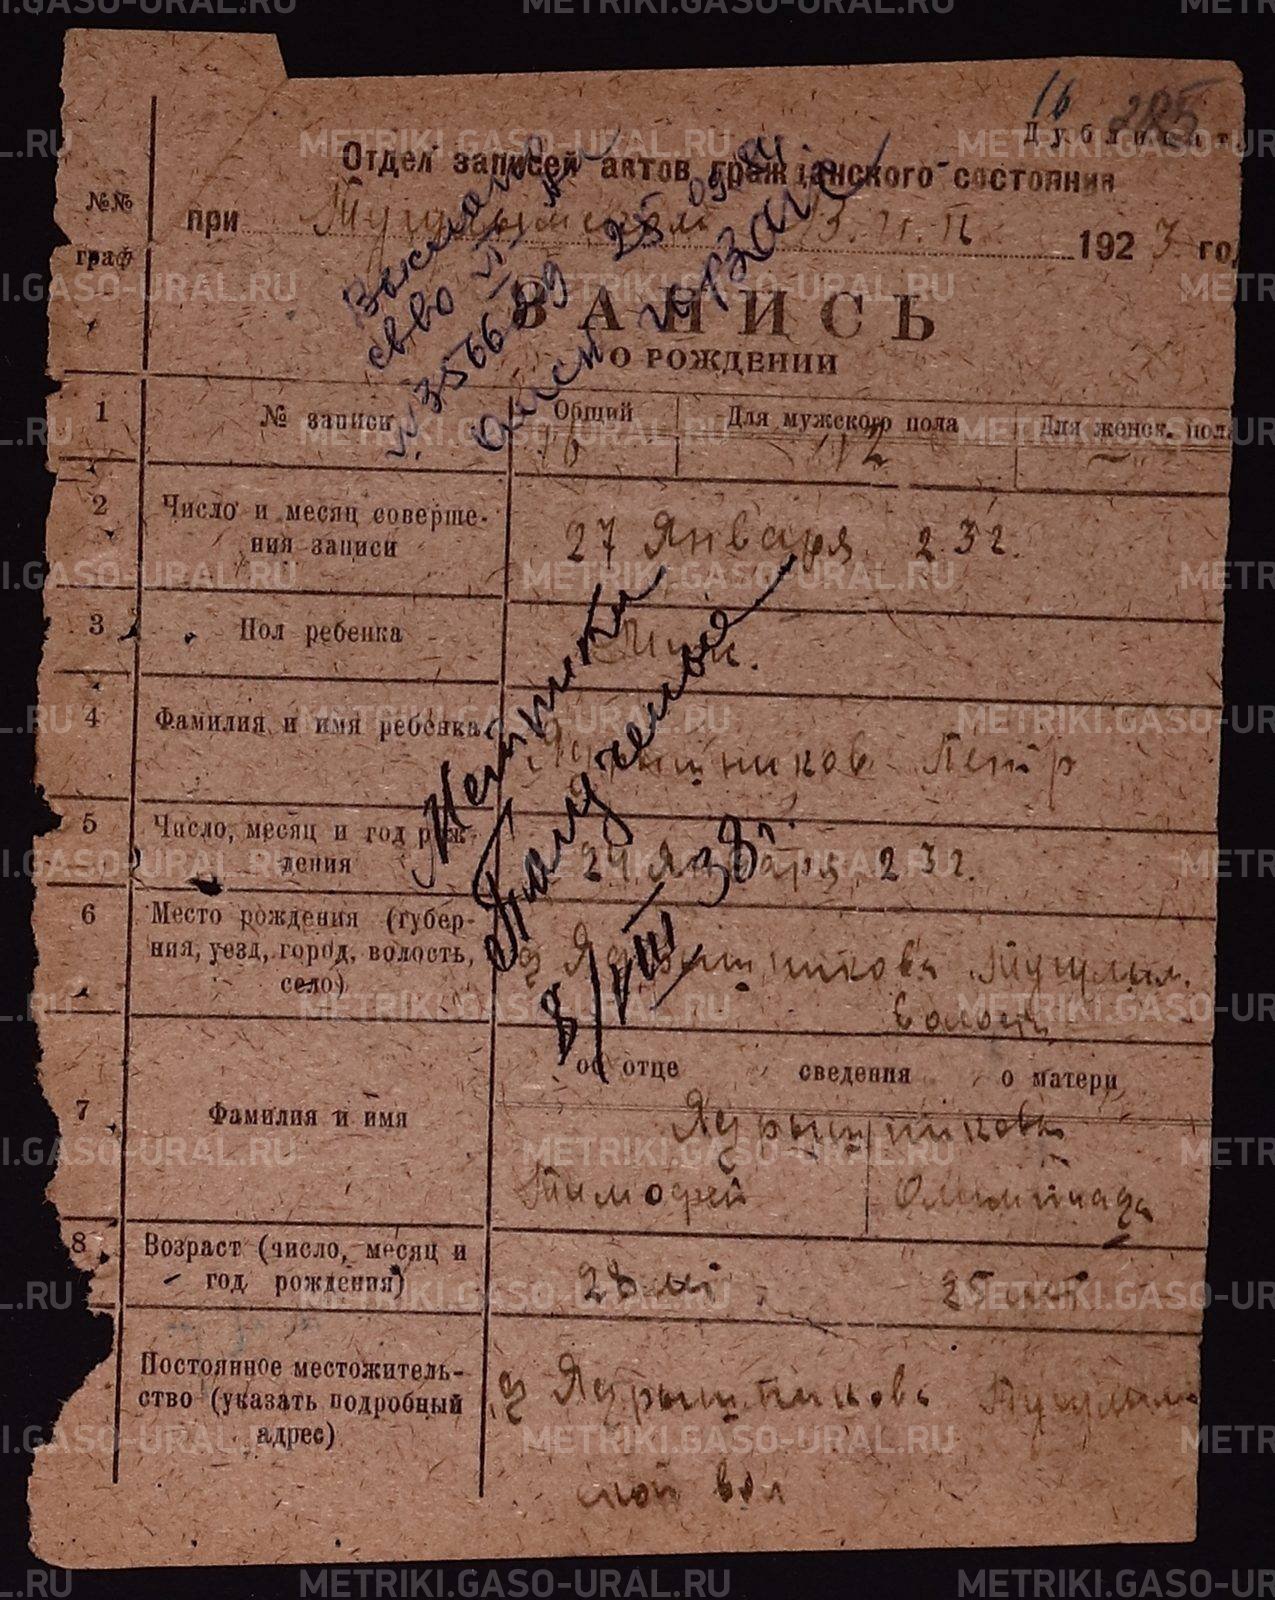 16 285
Дубликат.
Отдел записей актов гражданского состояния
при Тугулымском В.И.К. 1923 год
№№ граф
Выслано
св-во VI
№ 3566
25
ЗАПИСЬ
О РОЖДЕНИИ
1 № записи Общий Для мужского пола Для женск. пола
16 12 —
2 Число и месяц соверше-
ния записи
27 Января 23 г.
3 Пол ребенка
Муж.
4 Фамилия и имя ребенка
Ядрышников Петр
5 Число, месяц и год рож-
дения
24 Января 23 г.
Метрики
Получены
8/VIII–38 г.
6 Место рождения (губер-
ния, уезд, город, волость,
село)
д Ядрышникова Тугулым.
волости
об отце сведения о матери
7 Фамилия и имя
Ядрышниковы
Тимофей Олимпиада
8 Возраст (число, месяц и
год рождения)
28 лет 25 лет
Постоянное местожитель-
ство (указать подробный
адрес)
д Ядрышникова Тугулым
ской вол
METRIKI.GASO-URAL.RU